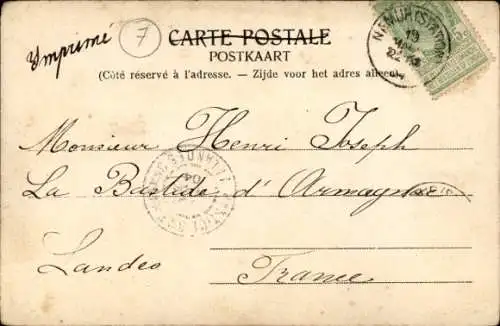 Imprimé
7
CARTE POSTALE
POSTKAART
(Côté réservé à l'adresse. – Zijde voor het adres alleen.)
NAMUR (STATION)
19
22
Monsieur Henri Joseph
La Bastide d'Armagnac
04
Landes
France